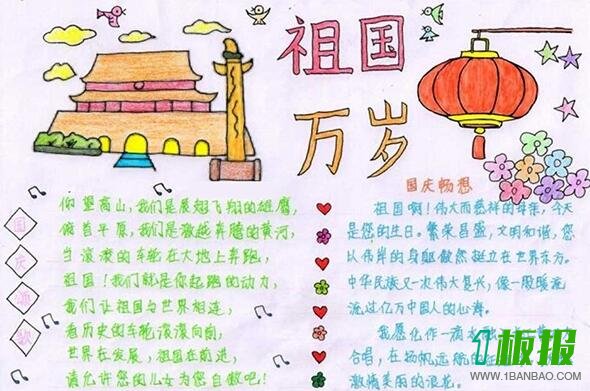 祖国
万岁
国庆颂歌
仰望高山,我们是展翅飞翔的雄鹰,
俯首平原,我们是激越奔腾的黄河,
当滚滚的车轮在大地上奔跑,
祖国!我们就是你起跑的动力,
我们让祖国与世界相连,
看历史的车轮滚滚向前,
世界在发展,祖国在前进,
请允许您的儿女为您自傲吧!
国庆畅想
祖国啊!伟大而慈祥的母亲,今天
是您的生日。繁荣昌盛,文明和谐,您
以伟岸的身躯傲然挺立在世界东方。
中华民族又一次伟大复兴,像一股暖流
流过亿万中国人的心海。
我愿化作一滴水
合唱,在扬帆远航的
激情美丽的浪花。
1板报
WWW.1BANBAO.COM